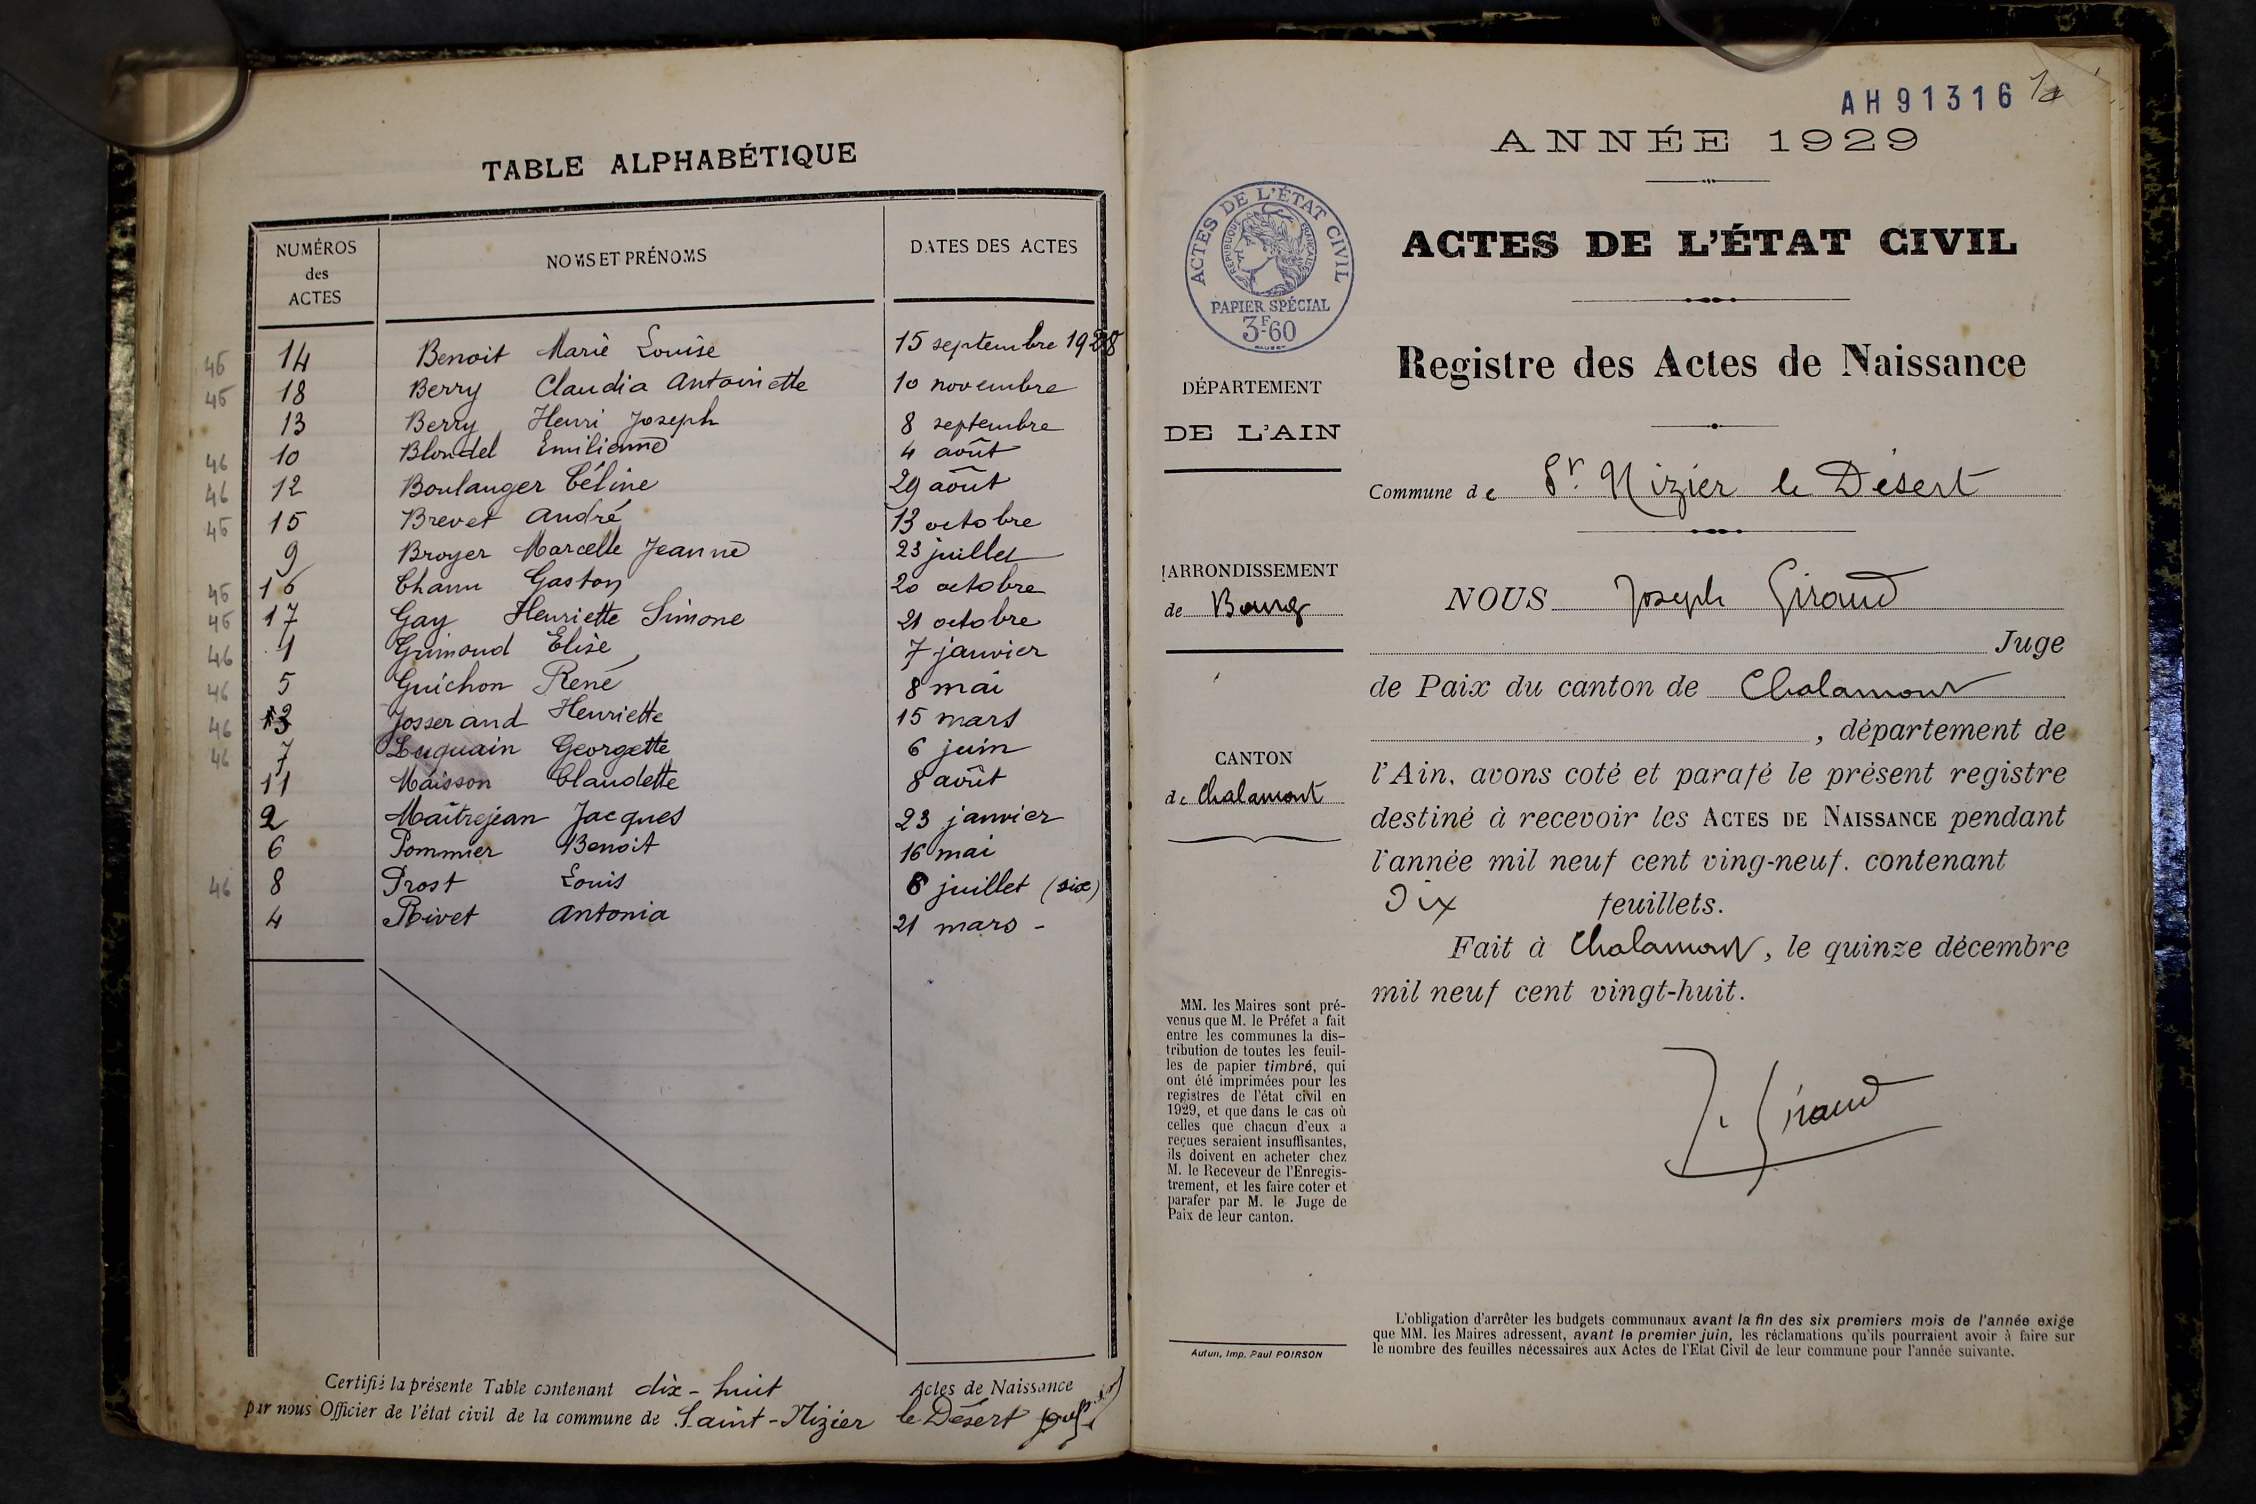 TABLE ALPHABÉTIQUE
NUMÉROS des ACTES NOMS ET PRÉNOMS DATES DES ACTES
46 14 Benoit Marie Louise 15 septembre 1928
46 18 Berry Claudia Antoinette 10 novembre
13 Berry Henri Joseph 8 septembre
46 10 Blondel Emilienne 4 août
46 12 Boulanger Céline 29 août
46 15 Brevet André 13 octobre
9 Broyer Marcelle Jeanne 23 juillet
46 16 Chanu Gaston 20 octobre
46 17 Gay Henriette Simone 21 octobre
46 1 Guimoud Elise 7 janvier
46 5 Guichon René 8 mai
46 3 Josserand Henriette 15 mars
46 7 Luquain Georgette 6 juin
11 Maisson Claudette 8 août
2 Maîtrejean Jacques 23 janvier
6 Pommier Benoit 16 mai
46 8 Prost Louis 6 juillet (six)
4 Rivet Antonia 21 mars -
Certifié la présente Table contenant dix-huit Actes de Naissance
par nous Officier de l'état civil de la commune de Saint-Nizier le Désert
AH91316
ANNÉE 1929
ACTES DE L'ÉTAT CIVIL
RÉPUBLIQUE FRANÇAISE
PAPIER SPÉCIAL
3F60
ACTES DE L'ÉTAT CIVIL
Registre des Actes de Naissance
DÉPARTEMENT
DE L'AIN
Commune de St. Nizier le Désert
ARRONDISSEMENT
de Bourg
CANTON
de Chalamont
NOUS Joseph Giraud
Juge
de Paix du canton de Chalamont
, département de
l'Ain, avons coté et parafé le présent registre
destiné à recevoir les ACTES DE NAISSANCE pendant
l'année mil neuf cent ving-neuf. contenant
Dix feuillets.
Fait à Chalamont, le quinze décembre
mil neuf cent vingt-huit.
J. Giraud
MM. les Maires sont pré-
venus que M. le Préfet a fait
entre les communes la dis-
tribution de toutes les feuil-
les de papier timbré, qui
ont été imprimées pour les
registres de l'état civil en
1929, et que dans le cas où
celles que chacun d'eux a
reçues seraient insuffisantes,
ils doivent en acheter chez
M. le Receveur de l'Enregis-
trement, et les faire coter et
parafer par M. le Juge de
Paix de leur canton.
Autun, Imp. Paul POIRSON
L'obligation d'arrêter les budgets communaux avant la fin des six premiers mois de l'année exige
que MM. les Maires adressent, avant le premier juin, les réclamations qu'ils pourraient avoir à faire sur
le nombre des feuilles nécessaires aux Actes de l'Etat Civil de leur commune pour l'année suivante.